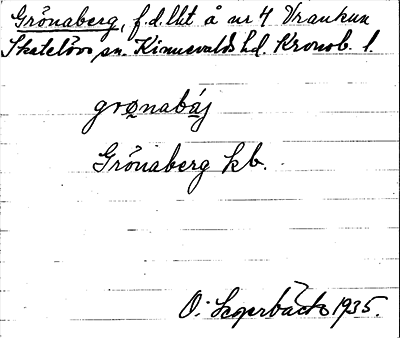 Grönaberg, f.d. lht å nr 4 Vrankun
Skatelövs sn. Kinnevalds hd. Kronob. l.
grønabáj
Grönaberg kb.
O. Lagerbäck 1935.